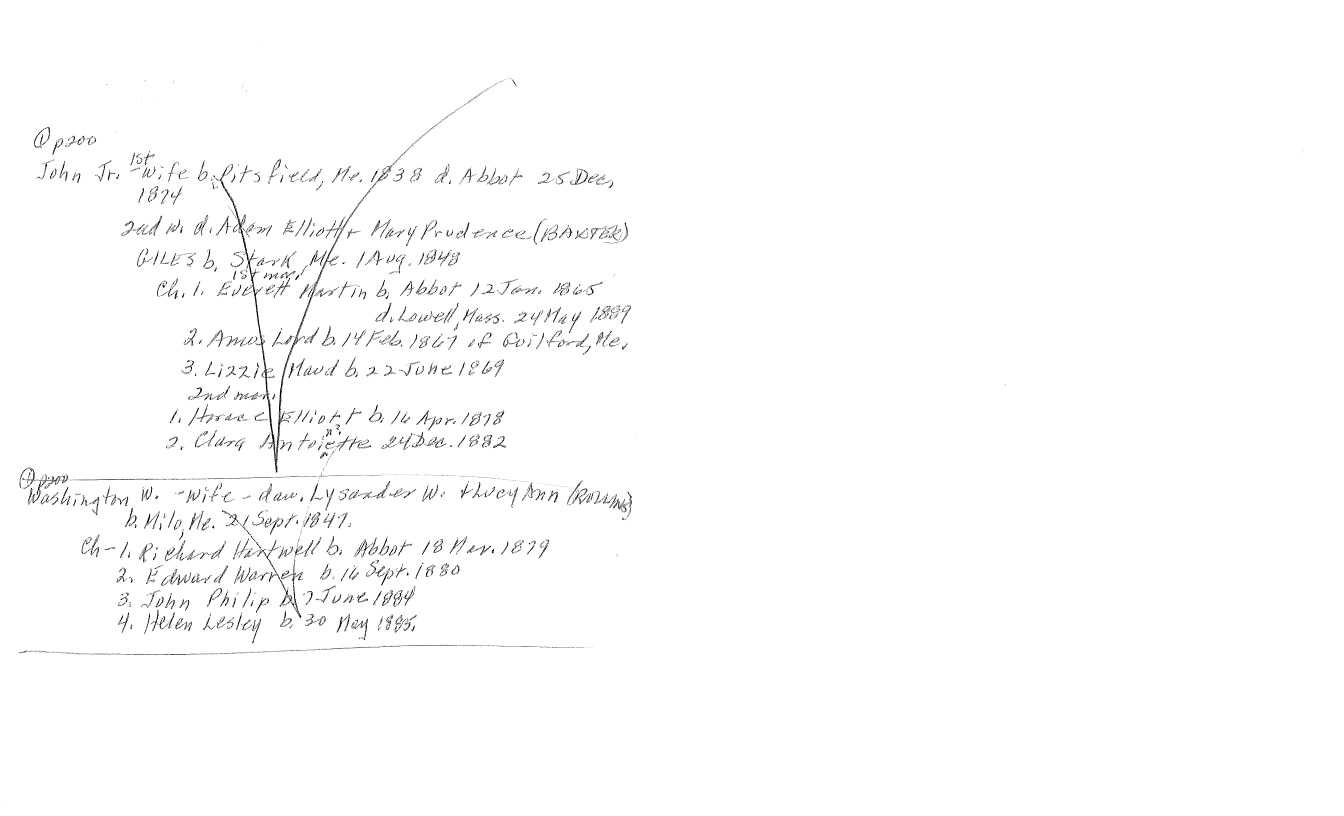 ① p200
John Jr. 1st Wife b. Pitsfield, Me. 1838 d. Abbot 25 Dec.
1874
2nd w. d. Adam Elliott + Mary Prudence (BAXTER)
GILES b. Stark, Me. 1 Aug. 1848
1st mar.
Ch. 1. Everett Martin b. Abbot 12 Jan. 1865
d. Lowell, Mass. 24 May 1889
2. Amos Lord b. 14 Feb. 1867 of Guilford, Me.
3. Lizzie Maud b. 22 June 1869
2nd mar.
1. Horace Elliott b. 16 Apr. 1878
n?
2. Clara Antoiette 24 Dec. 1882
① p200
Washington W. - wife - dau. Lysander W. + Lucy Ann (ROLLINS)
b. Milo, Me. 21 Sept. 1847.
Ch - 1. Richard Hartwell b. Abbot 18 Mar. 1879
2. Edward Warren b. 16 Sept. 1880
3. John Philip b. 7 June 1884
4. Helen Lesley b. 30 May 1885.